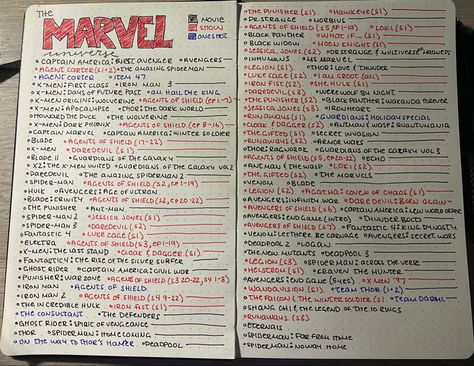 The
MARVEL
universe
MOVIE
SHOW
ONESHOT
CAPTAIN AMERICA: FIRST AVENGER AVENGERS
AGENT CARTER (S1+2) THE AMAZING SPIDERMAN
AGENT CARTER ITEM 47
X-MEN: FIRST CLASS IRON MAN 3
X-MEN: DAYS OF FUTURE PAST ALL HAIL THE KING
X-MEN ORIGINS: WOLVERINE AGENTS OF SHIELD (EP 1-7)
X-MEN: APOCALYPSE THOR: THE DARK WORLD
HOWARD THE DUCK THE WOLVERINE
X-MEN: DARK PHOENIX AGENTS OF SHIELD (EP 8-16)
CAPTAIN MARVEL CAPTAIN AMERICA: WINTER SOLDIER
BLADE AGENTS OF SHIELD (17-22)
X-MEN DAREDEVIL (S1)
BLADE II GUARDIANS OF THE GALAXY
X2: THE X-MEN UNITED GUARDIANS OF THE GALAXY VOL 2
DAREDEVIL THE AMAZING SPIDERMAN 2
SPIDER-MAN AGENTS OF SHIELD (S2, EP 1-19)
HULK AVENGERS: AGE OF ULTRON
BLADE: TRINITY AGENTS OF SHIELD (S2, EP 20-22)
THE PUNISHER ANT-MAN
SPIDER-MAN 2 JESSICA JONES (S1)
SPIDER-MAN 3 DAREDEVIL (S2)
FANTASTIC 4 LUKE CAGE (S1)
ELEKTRA AGENTS OF SHIELD (S3, EP 1-19)
X-MEN: THE LAST STAND CLOAK & DAGGER (S1)
FANTASTIC 4: THE RISE OF THE SILVER SURFER
GHOST RIDER CAPTAIN AMERICA: CIVIL WAR
PUNISHER: WAR ZONE AGENTS OF SHIELD (S3 20-22, S4 1-8)
IRON MAN AGENTS OF SHIELD
IRON MAN 2 AGENTS OF SHIELD (S4 9-22)
THE INCREDIBLE HULK IRON FIST (S1)
THE CONSULTANT THE DEFENDERS
GHOST RIDER: SPIRIT OF VENGEANCE
THOR SPIDERMAN: HOMECOMING
ON THE WAY TO THOR'S HAMER DEADPOOL
THE PUNISHER (S1) HAWKEYE (S1)
DR. STRANGE MORBIUS
AGENTS OF SHIELD (S5, EP 1-19) LOKI (S1)
BLACK PANTHER WHAT IF... (S1)
BLACK WIDOW MOON KNIGHT (S1)
JESSICA JONES (S2) DR STRANGE: MULTIVERSE MADNESS
INHUMANS MS MARVEL
LEGION (S1) THOR: LOVE & THUNDER
LUKE CAGE (S2) I AM GROOT (ALL)
IRON FIST (S2) SHE HULK (S1)
DAREDEVIL (S3) WEREWOLF BY NIGHT
THE PUNISHER (S2) BLACK PANTHER: WAKANDA FOREVER
JESSICA JONES (S3) IRONHEART
RUNAWAYS (S1) GUARDIANS: HOLIDAY SPECIAL
CLOAK & DAGGER (S2) ANTMAN & WASP: QUANTUMANIA
THE GIFTED (S1) SECRET INVASION
RUNAWAYS (S2) ARMOR WARS
THOR: RAGNAROK GUARDIANS OF THE GALAXY VOL 3
AGENTS OF SHIELD (S5, EP 20-22) ECHO
ANT MAN & THE WASP LOKI (S2)
THE GIFTED (S2) THE MARVELS
VENOM BLADE
LEGION (S2) AGATHA: COVEN OF CHAOS (S1)
AVENGERS: INFINITY WAR DAREDEVIL: BORN AGAIN
AGENTS OF SHIELD (S6) CAPTAIN AMERICA: NEW WORLD ORDER
AVENGERS: END GAME (INTRO) THUNDERBOLTS
AGENTS OF SHIELD (S7) FANTASTIC 4: KING DYNASTY
VENOM: LET THERE BE CARNAGE AVENGERS: SECRET WARS
DEADPOOL 2 LOGAN
THE NEW MUTANTS DEADPOOL 3
LEGION (S3) SPIDERMAN: ACROSS THE VERSE
HELSTROM (S1) KRAVEN THE HUNTER
AVENGERS: END GAME X-MEN '97
WANDAVISION (S1) TEAM THOR (1+2)
THE FALCON & THE WINTER SOLDIER (S1) TEAM DARRYL
SHANG CHI & THE LEGEND OF THE 10 RINGS
RUNAWAYS (S3)
ETERNALS
SPIDERMAN: FAR FROM HOME
SPIDERMAN: NO WAY HOME